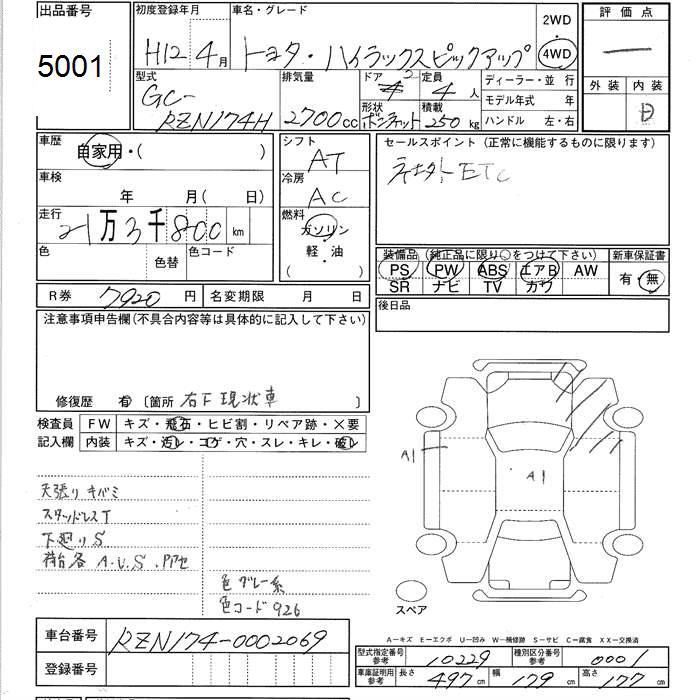 出品番号 初度登録年月 車名・グレード 2WD 評価点
5001 H12 4月 トヨタ・ハイラックスピックアップ 4WD
型式 排気量 ドア 2 定員 ディーラー・並行 外装 内装
GC- 4 4人 モデル年式 年 D
RZN174H 2700cc 形状 ボンネット 積載 250kg ハンドル 左・右
車歴 シフト セールスポイント(正常に機能するものに限ります)
自家用・( ) AT ETC
車検 冷房
年 月(日) AC
走行 燃料
21万3千800km ガソリン
色 色替 色コード 軽・油
( )
装備品(純正品に限り○をつけて下さい) 新車保証書
PS PW ABS エアB AW 有・無
SR ナビ TV カワ
R券 7920円 名変期限 月 日 後日品
注意事項申告欄(不具合内容等は具体的に記入して下さい)
修復歴 有 〔箇所 右下 現状車 〕
検査員 FW キズ・飛石・ヒビ割・リペア跡・×要
記入欄 内装 キズ・汚レ・コゲ・穴・スレ・キレ・破レ
A1
A1
天張りキバミ
スタッドレスT
下廻りS
荷台各A.U.S.
色グレー系
色コード926
スペア
車台番号 RZN174-0002069
登録番号
A-キズ E-エクボ U-凹み W-補修跡 S-サビ C-腐食 XX-交換済
型式指定番号 参考 10229 種別区分番号 参考 0001
車庫証明用 参考 長さ 497cm 幅 179cm 高さ 177cm